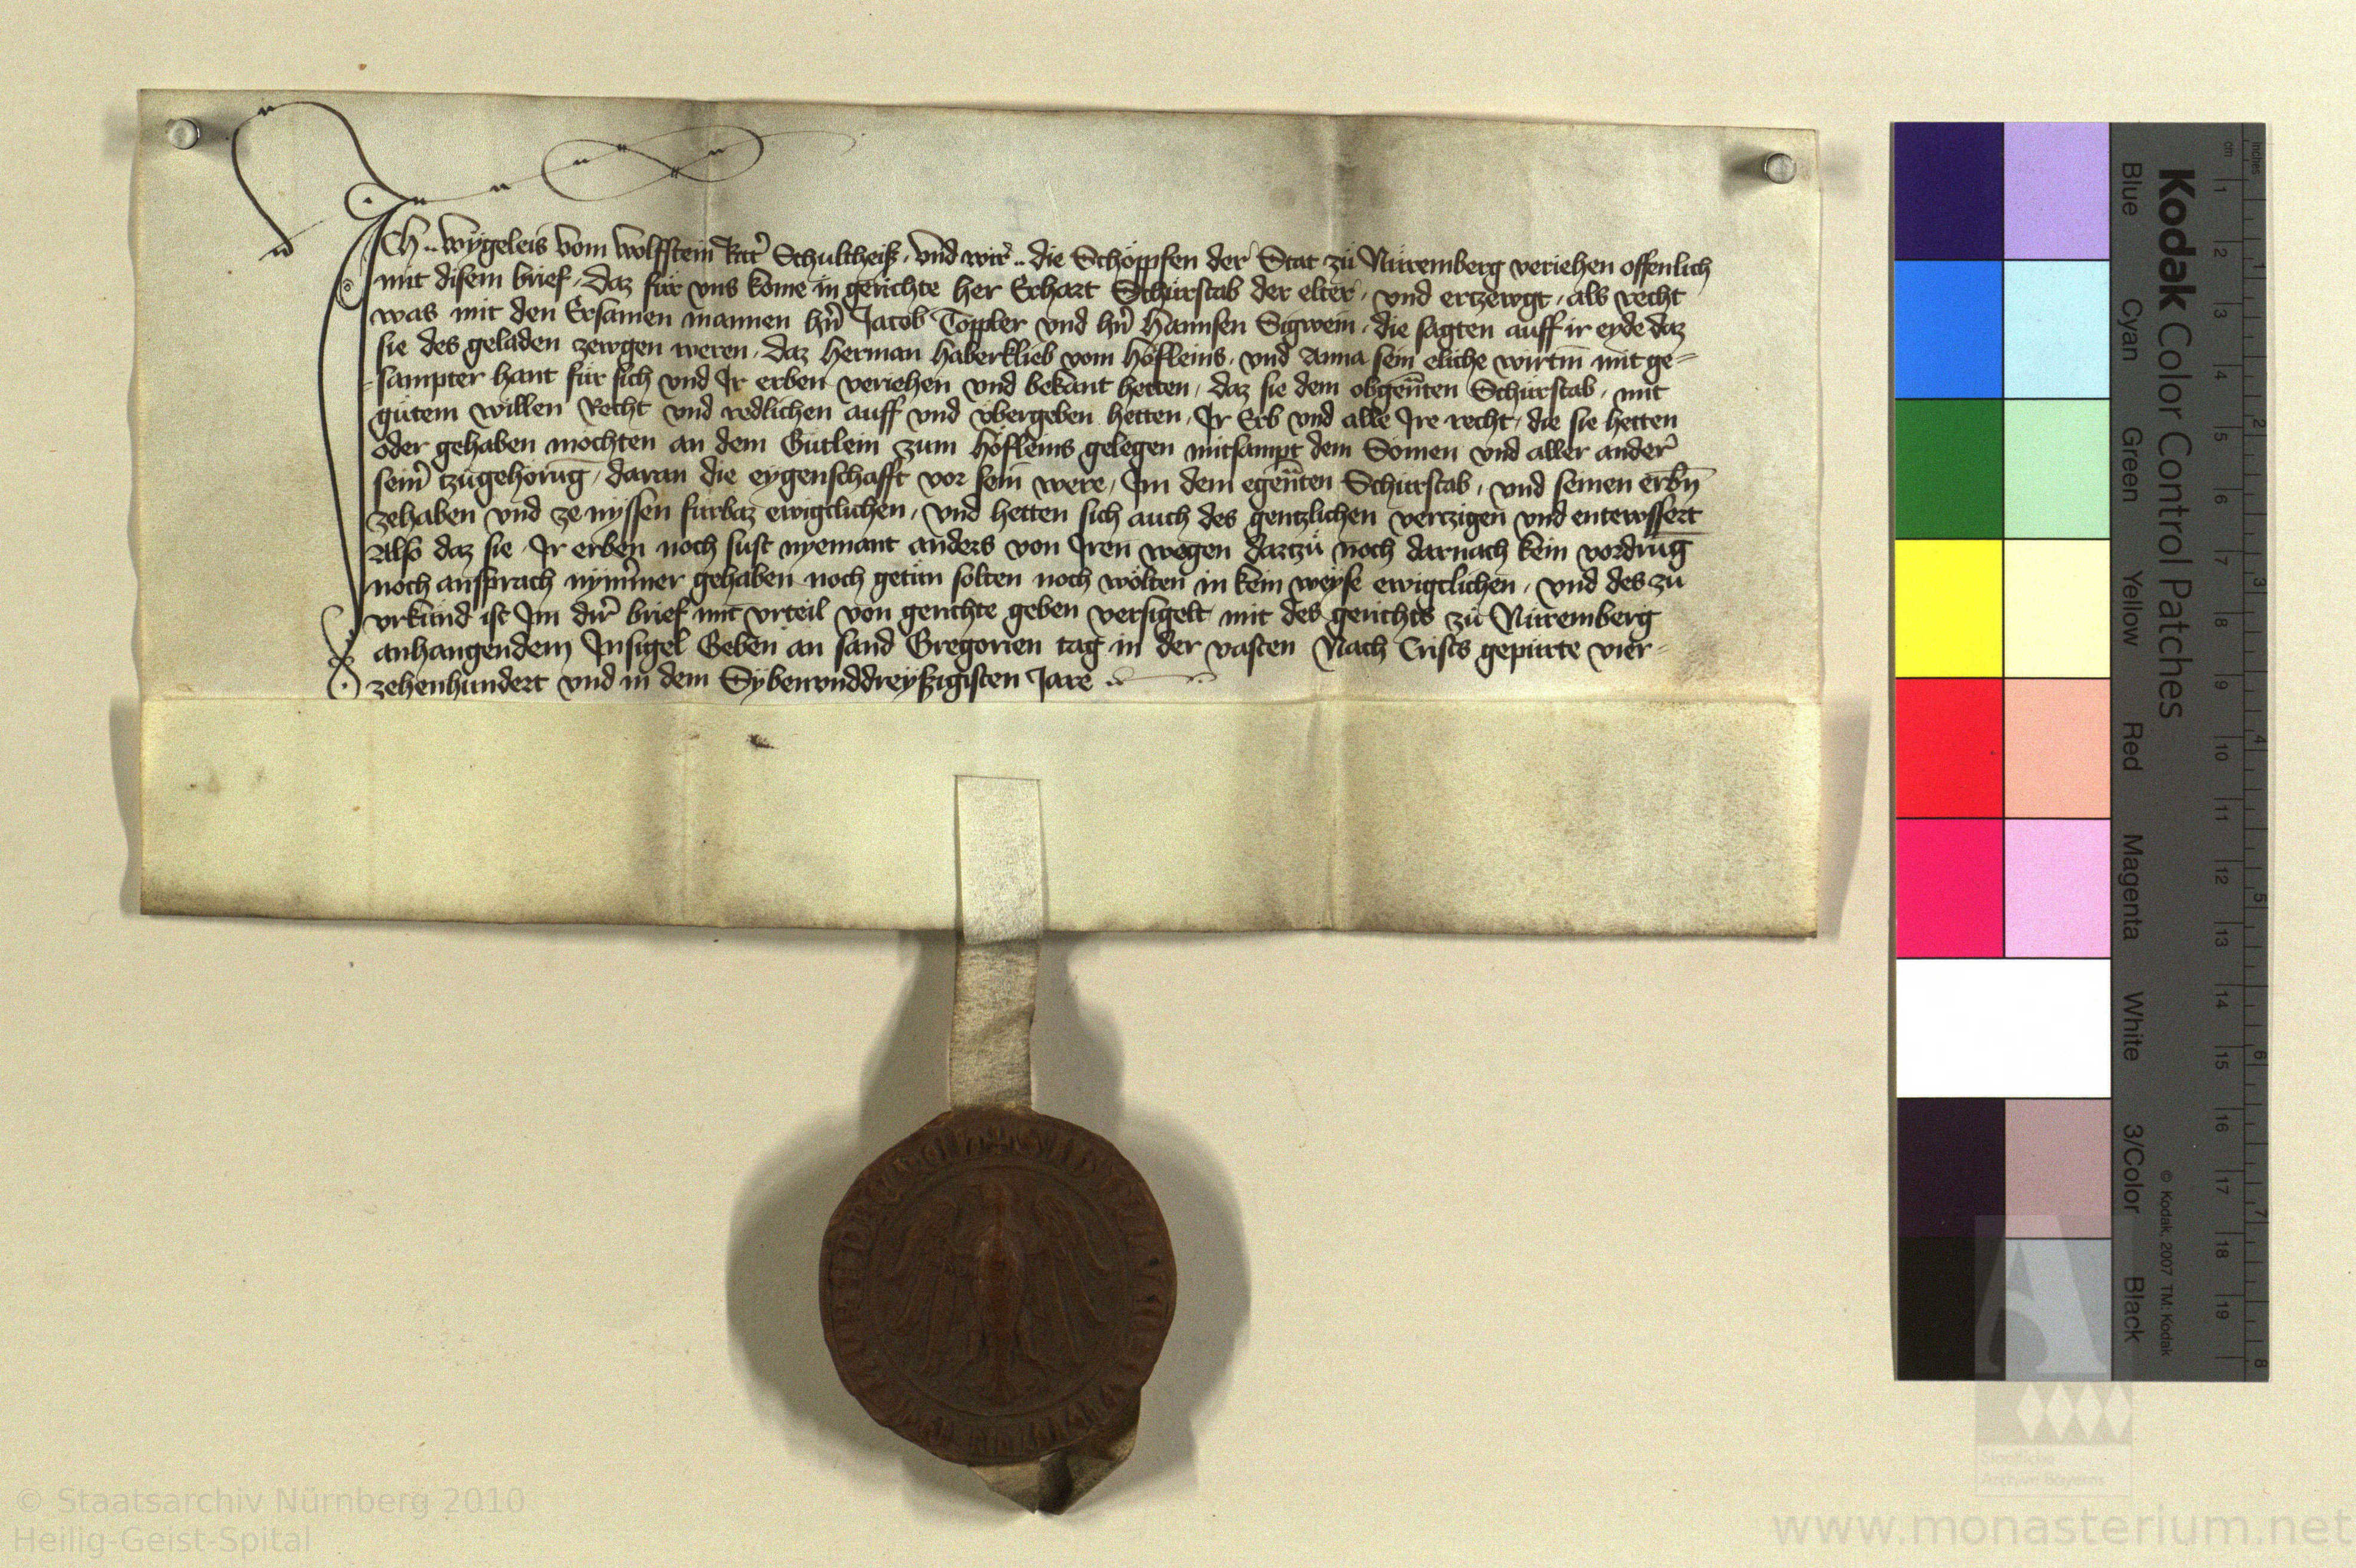 ICh .. wÿgeleis vom wolffstein Ritt͛ Schultheiß, vnd wir .. die Schöpfen der Stat zů Nüremberg veriehen offenlich
mit disem brief, daz für vns kome in gerichte her Erhart Schürstab der elter, vnd ertzewgt, als recht
was mit den Ersamen mannen hñ Jacob Toppler vnd hñ Hannsen Sigwein, die sagten auff ir eyde daz
sie des geladen zewgen weren, daz Herman Haberklieb vom Höfleins, vnd Anna sein eliche wirtin mit ge=
=sampter hant für sich vnd Ir erben veriehen vnd bekant hetten, daz sie dem obgen̄ten Schürstab, mit
gůtem willen Recht vnd redlichen auff vnd v̈bergeben hetten, Ir Erb vnd alle Ire recht, die sie hetten
oder gehaben mochten an dem Gütlein zum Höfleins gelegen mitsampt dem Somen vnd aller ander͛
sein͛ tzůgehörūg, daran die eygenschafft vor sein were, Im dem egen̄ten Schürstab, vnd seinen erbn̄
zehaben vnd ze nyssen fürbaz ewigclichen, vnd hetten sich auch des gentzlichen vertzigen vnd entewssert
Also daz sie, Ir erben noch sust nyemant anders von Iren wegen dartzů noch darnach kein vordrūg
noch ansprach nym̄mer gehaben noch getůn solten noch wölten in kein weyse ewigclichen, vnd des zu
vrkund ist Im dir͛ brief mit vrteil von gerichte geben versigelt mit des gerichts zů Nüremberg
anhangendem Insigel Geben an sand Gregorien tag in der vasten Nach Crists gepurte vier=
zehenhundert vnd in dem Sybenvnddreyßzigisten Jare
Kodak Color Control Patches
Blue Cyan Green Yellow Red Magenta White 3/Color Black
© Kodak, 2007 TM: Kodak
cm 1 2 3 4 5 6 7 8 9 10 11 12 13 14 15 16 17 18 19
inches 1 2 3 4 5 6 7 8
Staatliche
Archive Bayerns
© Staatsarchiv Nürnberg 2010
Heilig-Geist-Spital
www.monasterium.net